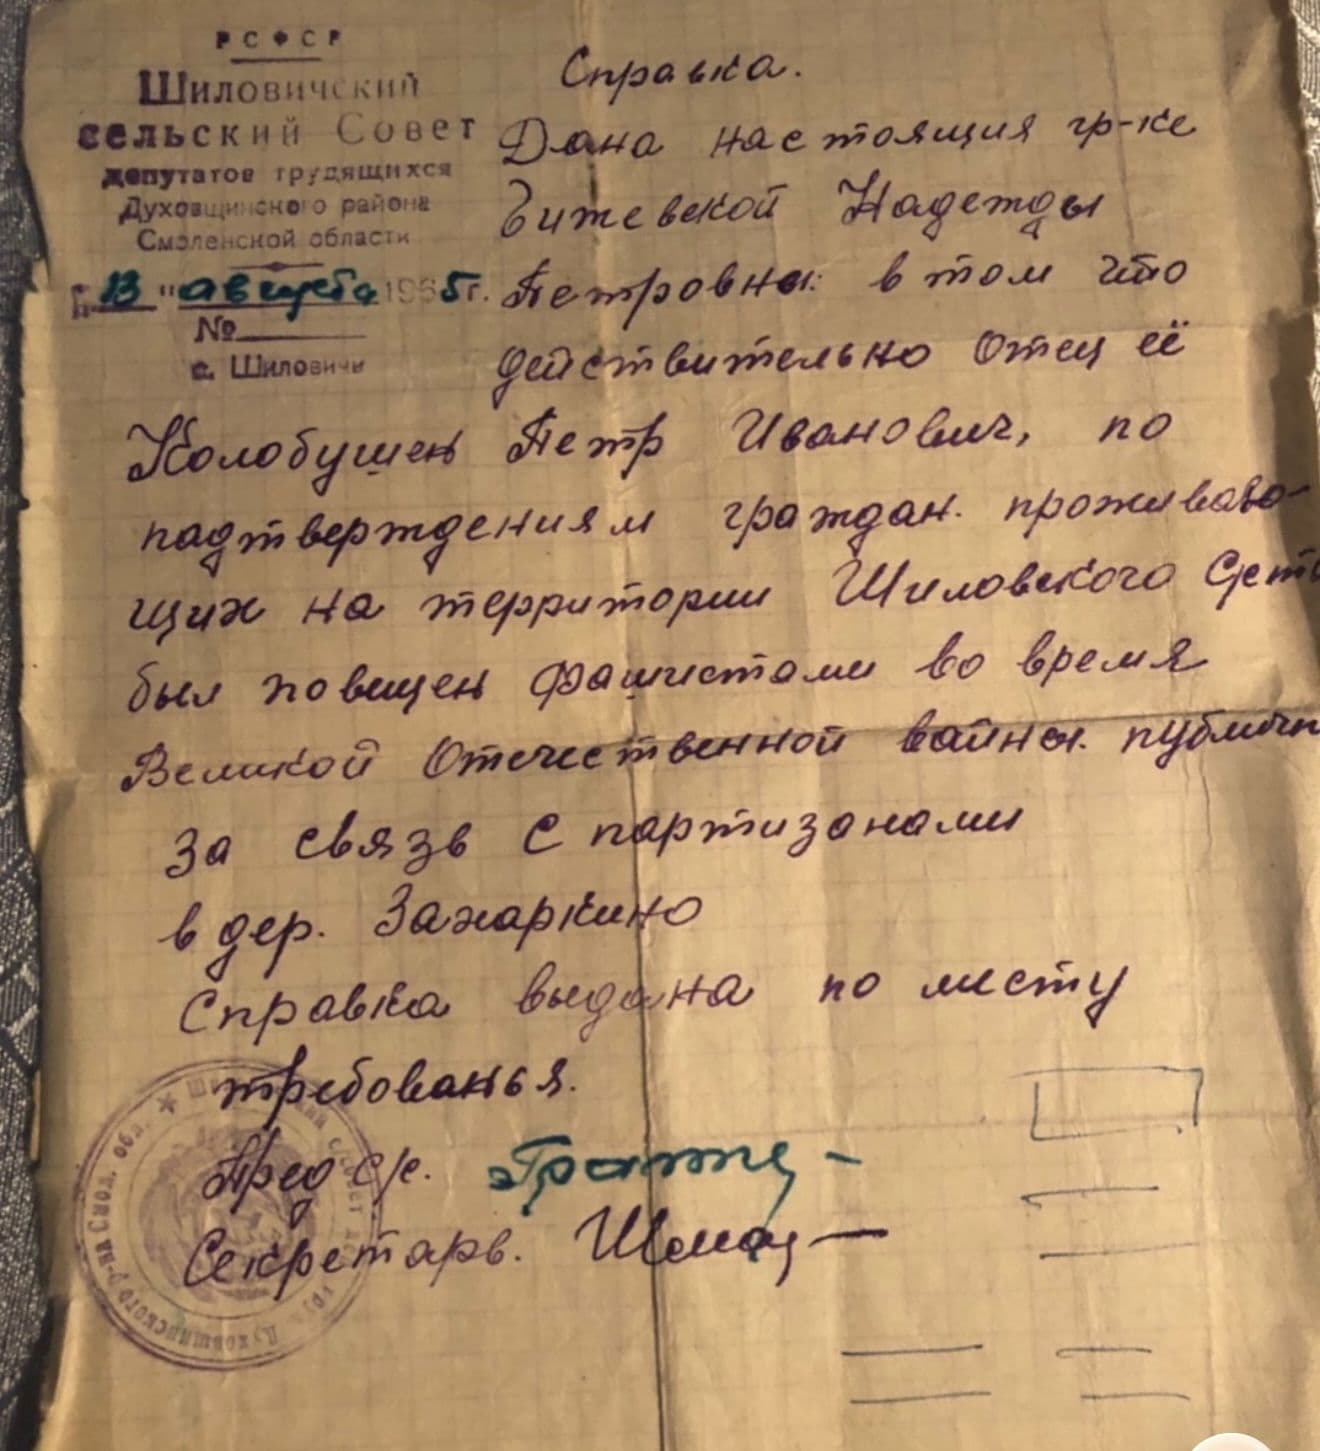 РСФСР
Шиловичский
сельский Совет
депутатов трудящихся
Духовщинского района
Смоленской области
"13" августа 1965г.
№
с. Шиловичи
Справка.
Дана настоящия гр-ке
Надежды
Петровны: в том что
действительно отец её
Колобушен Петр Иванович, по
падтверждениям граждан. проживаю-
щих на территории Шиловского
был повешен фашистами во время
Великой Отечественной вайны. публичн
За связь с партизанами
в дер. Захаркино
Справка выдана по месту
требованья.
Пред с/с.
Секретарь.
Духовщинского р-на Смол. обл.